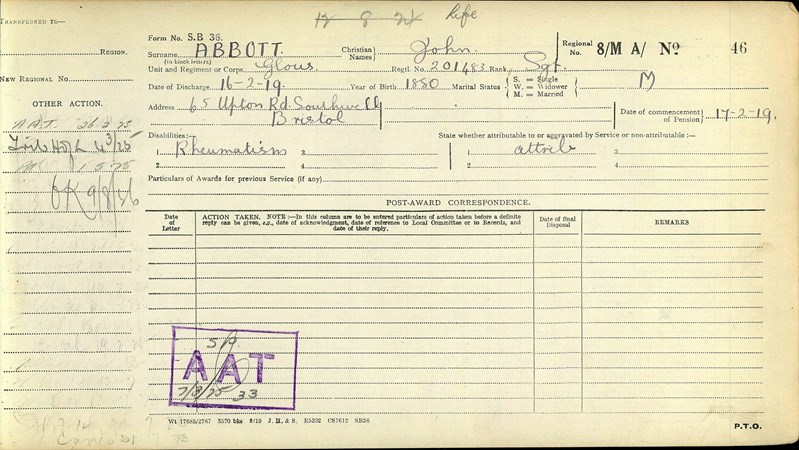 TRANSFERRED TO—
12 8 24 life
Form No. S.B 36.
Surname ABBOTT. Christian Names John. Regional No. 8/M A/ No 46
(in block letters)
REGION.
Unit and Regiment or Corps Glous. Regtl. No. 201483 Rank Sgt.
NEW REGIONAL No.
Date of Discharge 16-2-19. Year of Birth 1880 Marital Status S. = Single W. = Widower M. = Married M
OTHER ACTION.
Address 65 Upton Rd. Southville
Bristol
Date of commencement of Pension 17-2-19.
AAT. 26.2.25
Disabilities:— State whether attributable to or aggravated by Service or non-attributable :—
1. Rheumatism 3. 1. attrib 3.
2. 4. 2. 4.
1.5.25
OK 9/8/36
Particulars of Awards for previous Service (if any)
POST-AWARD CORRESPONDENCE.
Date of Letter
ACTION TAKEN. NOTE :—In this column are to be entered particulars of action taken before a definite reply can be given, e.g., date of acknowledgment, date of reference to Local Committee or to Records, and date of their reply.
Date of final Disposal
REMARKS
AAT
7/3/25 33
Wt 17685/2767 3570 bks 5/19 J. H., & S. E5332 CS7612 SB36
P.T.O.